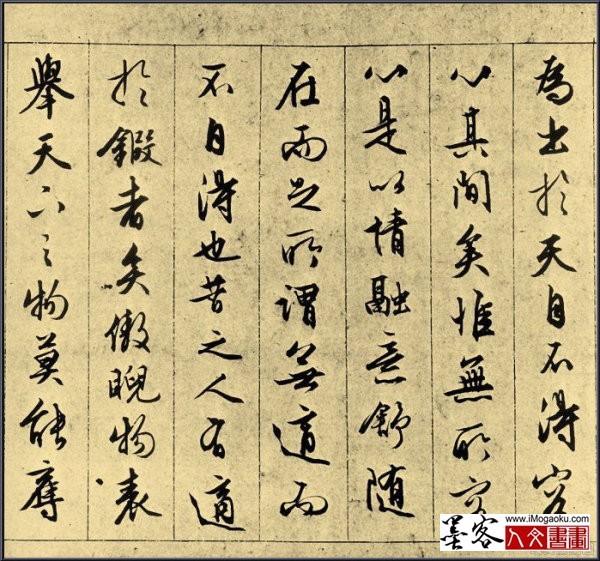 為出於天自不得容
心其間矣惟無所容
心是以情融意舒隨
在而足所謂無適而
不自得也昔之人有適
於鍛者矣傲睨物表
舉天下之物莫能奪
www.iMogaoku.com
墨客人文書畫